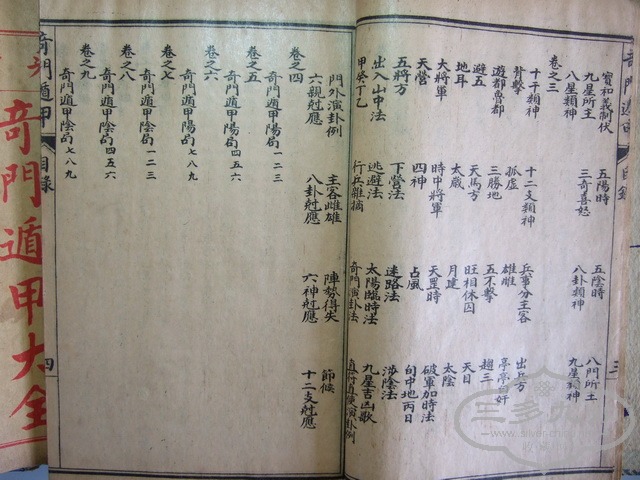 寶和義制伏 五陽時 五陰時 八門所主
九星所主 三奇喜怒 八卦類神 九星類神
八星類神
卷之三
十干類神 十二支類神 兵事分主客 出兵方
背擊 孤虛 雄雌 亭亭白奸
遊都魯都 三勝地 五不擊 趙三
避五 天馬方 旺相休囚 天目
地耳 太歲 月建 太陰
大將軍 時中將軍 天罡時 破軍加時法
天營 四神 占風 旬中地丙日
五將方 下營法 迷路法 涉陰法
出入山中法 逃避法 太陽臨時法 九星吉凶歌
甲癸丁乙 行兵雜摘 奇門演卦法 演卦例
門外演卦例 主客雌雄 陣勢得失 節候
六親尅應 八卦尅應 六神尅應 十二支尅應
卷之四
奇門遁甲陽局一二三
卷之五
奇門遁甲陽局四五六
卷之六
奇門遁甲陽局七八九
卷之七
奇門遁甲陰局一二三
卷之八
奇門遁甲陰局四五六
卷之九
奇門遁甲陰局七八九
奇門遁甲 目錄 四
奇門遁甲大全